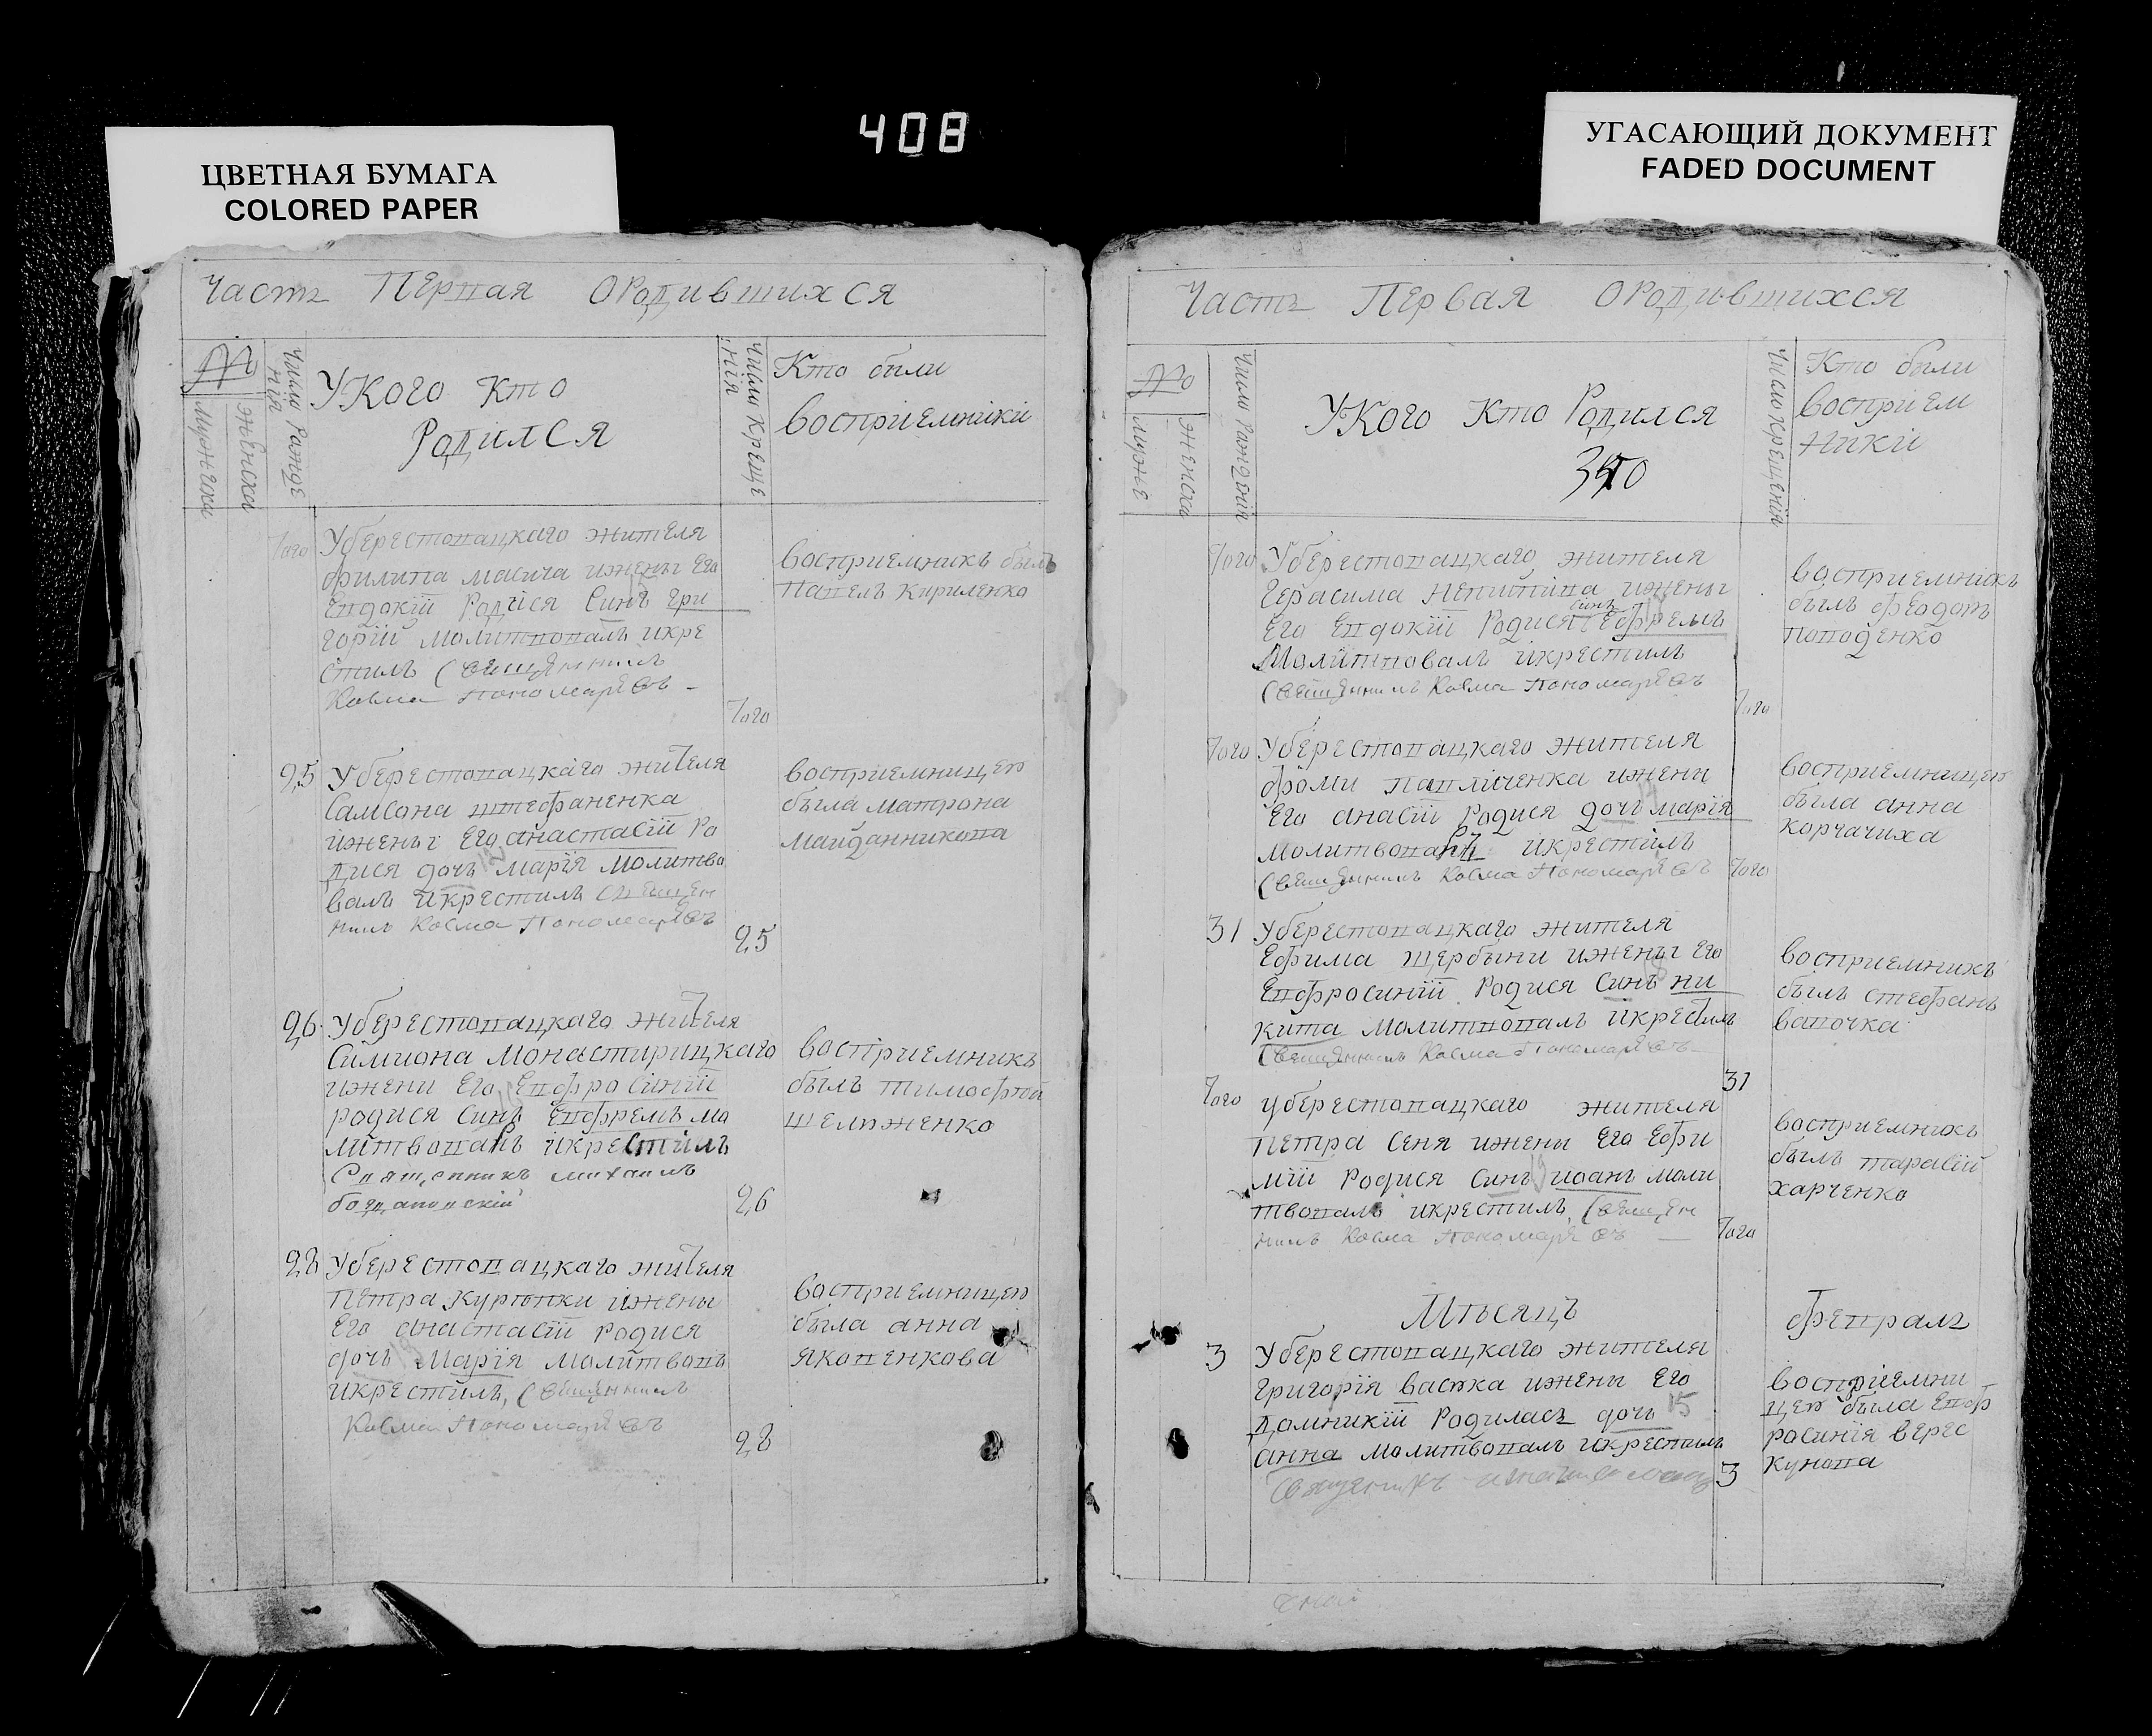 408
ЦВЕТНАЯ БУМАГА
COLORED PAPER
УГАСАЮЩИЙ ДОКУМЕНТ
FADED DOCUMENT
Частъ Перпая ОРодившихся
№
Мужеска
женска
Число Ражде
нія
УКого Кто
Родился
Число Креще
нія
Кто были
восприемникіи
Того
Уберестопацкаго жителя
филипа масича ижены Его
Епдокіи Родіся Синъ гри
горій молитпопалъ икре
стилъ Священникъ
Косма Пономарѣвъ
Того
восприемникъ былъ
Папелъ Кириленко
25
Уберестопацкаго жителя
Самсона штефаненка
ижены Его анастасіи Ро
дися дочъ марія молитво
валъ икрестилъ Священ
никъ Косма Пономарѣвъ
25
восприемницею
была матрона
майданникопа
26
Уберестопацкаго жителя
Симиона монастирицкаго
ижени Его Епфросиніи
родися Синъ Епфремъ мо
литвопалъ икрестилъ
Спященникъ михаилъ
богдапопскій
26
восприемникъ
былъ тимофтей
шелюженко
28
Уберестопацкаго жителя
Петра Курюпки ижены
Его анастасіи родися
дочъ Марія молитвопалъ
икрестилъ, Священникъ
Косма Пономарѣвъ
28
восприемницею
была анна
якопенкова
Частъ Первая ОРодившихся
№
Муже
женска
Число Рождения
УКого Кто Родился
Число Крещения
Кто были
восприем
никіи
Того
Уберестопацкаго жителя
Герасима непитипа ижены
Его Епдокіи Родися синъ Ефремъ
Молитповалъ икрестилъ
Священникъ Косма Пономарѣвъ
Того
восприемникъ
былъ феодотъ
Поподенко
Того
Уберестопацкаго жителя
фоми папліченка ижени
Его анасіи Родися дочъ марія
молитвопалъ икрестилъ
Священникъ Косма Пономарѣвъ
Того
восприемницею
была анна
корчачиха
31
Уберестопацкаго жителя
Ефима щербыни ижены Его
Епфросиніи Родися Синъ ни
кита молитпопалъ икрестилъ
Священникъ Косма Пономарѣвъ
31
восприемникъ
былъ стефанъ
вапочка
Того
Уберестопацкаго жителя
Петра Сеня ижени Его Ефи
міи Родися Синъ иоанъ моли
твопалъ икрестилъ, Священ
никъ Косма Пономарѣвъ
Того
восприемникъ
былъ тарасій
харченко
Мѣсяцъ фепралъ
3
Уберестопацкаго жителя
Григорія васюка ижены Его
домникіи Родиласъ дочъ 15
анна молитвопалъ икрестилъ
3
восприемни
цею была Епф
росинія верес
кунопа